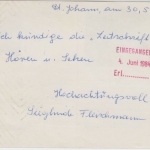 St. Johann, am 30.5
Ich kündige die „Zeitschrift
Hören u. Sehen
EINGEGANGEN
4. Juni 1984
Erl.
Hochachtungsvoll
Sieglinde Fleischmann